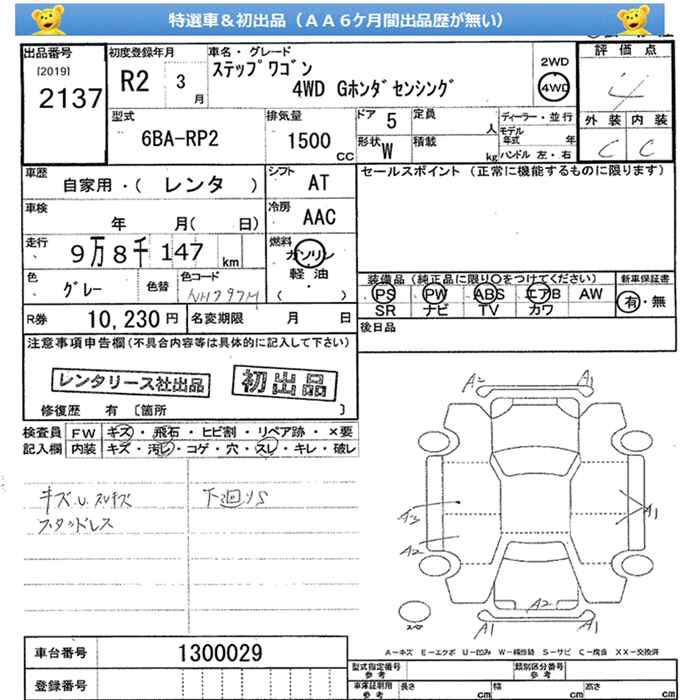 特選車＆初出品（ＡＡ６ケ月間出品歴が無い）
出品番号
[2019]
2137
初度登録年月
R2 3 月
車名・グレード
ステップワゴン
4WD Gホンダセンシング
2WD
4WD
評価点
4
外装 内装
C C
型式
6BA-RP2
排気量
1500 CC
ドア 5
形状 W
定員 人
積載 kg
ディーラー・並行
モデル年式 年
ハンドル 左・右
車歴
自家用・( レンタ )
シフト
AT
車検
年 月( 日)
冷房
AAC
走行
9万8千147 km
燃料
ガソリン
軽油
( ・ )
色
グレー
色替
色コード
NH797M
R券 10,230円
名変期限 月 日
セールスポイント（正常に機能するものに限ります）
装備品（純正品に限り〇をつけてください）
PS PW ABS エアB AW
SR ナビ TV カワ
新車保証書
有・無
後日品
注意事項申告欄(不具合内容等は具体的に記入して下さい)
レンタリース社出品
初出品
修復歴 有 〔箇所 〕
検査員記入欄
FW キズ・飛石・ヒビ割・リペア跡・×要
内装 キズ・汚レ・コゲ・穴・スレ・キレ・破レ
キズ.U.スリキズ
スタッドレス
下廻りS
A2 A1
A3
A2
A1
A2
A1 A1
スペア
A－キズ E－エクボ U－凹み W－補修跡 S－サビ C－腐食 XX－交換済
車台番号 1300029
登録番号
型式指定番号 参考
類別区分番号 参考
車庫証明用 参考
長さ cm 幅 cm 高さ cm